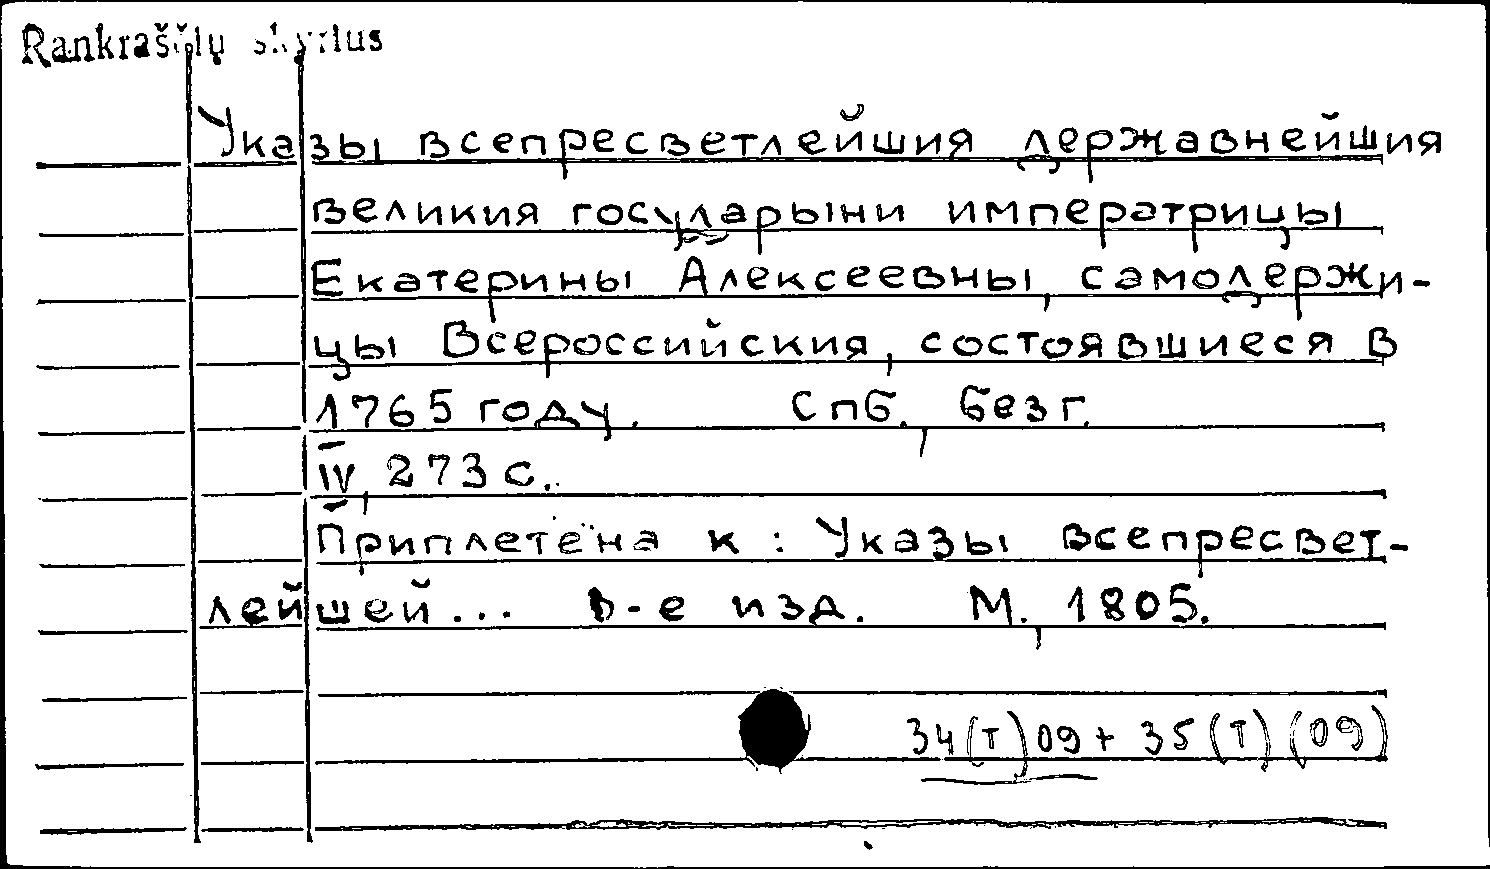 Rankraščių skyrius
Указы всепресветлейшия державнейшия
великия государыни императрицы
Екатерины Алексеевны, самодержи-
цы Всероссийския, состоявшиеся в
1765 году. Спб., без г.
IV, 273 с.
Приплетена к: Указы всепресвет-
лейшей... -е изд. М., 1805.
34(Т)09+35(Т)(09)